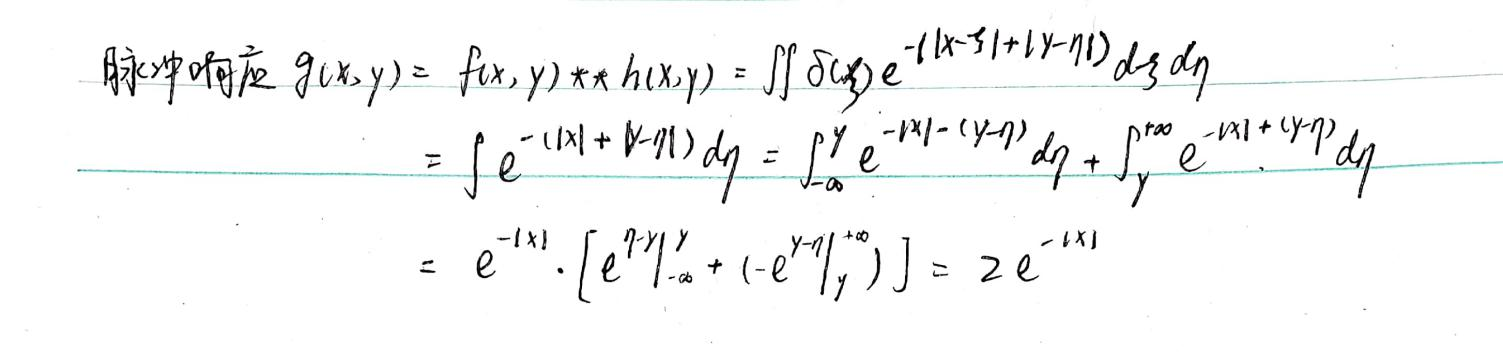 脉冲响应 g(x,y) = f(x,y) ** h(x,y) = ∬ δ(ξ) e^{-(|x-ξ|+|y-η|)} dξ dη
= ∫ e^{-(|x|+|y-η|)} dη = ∫_{-∞}^{y} e^{-|x|-(y-η)} dη + ∫_{y}^{+∞} e^{-|x|+(y-η)} dη
= e^{-|x|} · [e^{η-y}|_{-∞}^{y} + (-e^{y-η}|_{y}^{+∞})] = 2e^{-|x|}